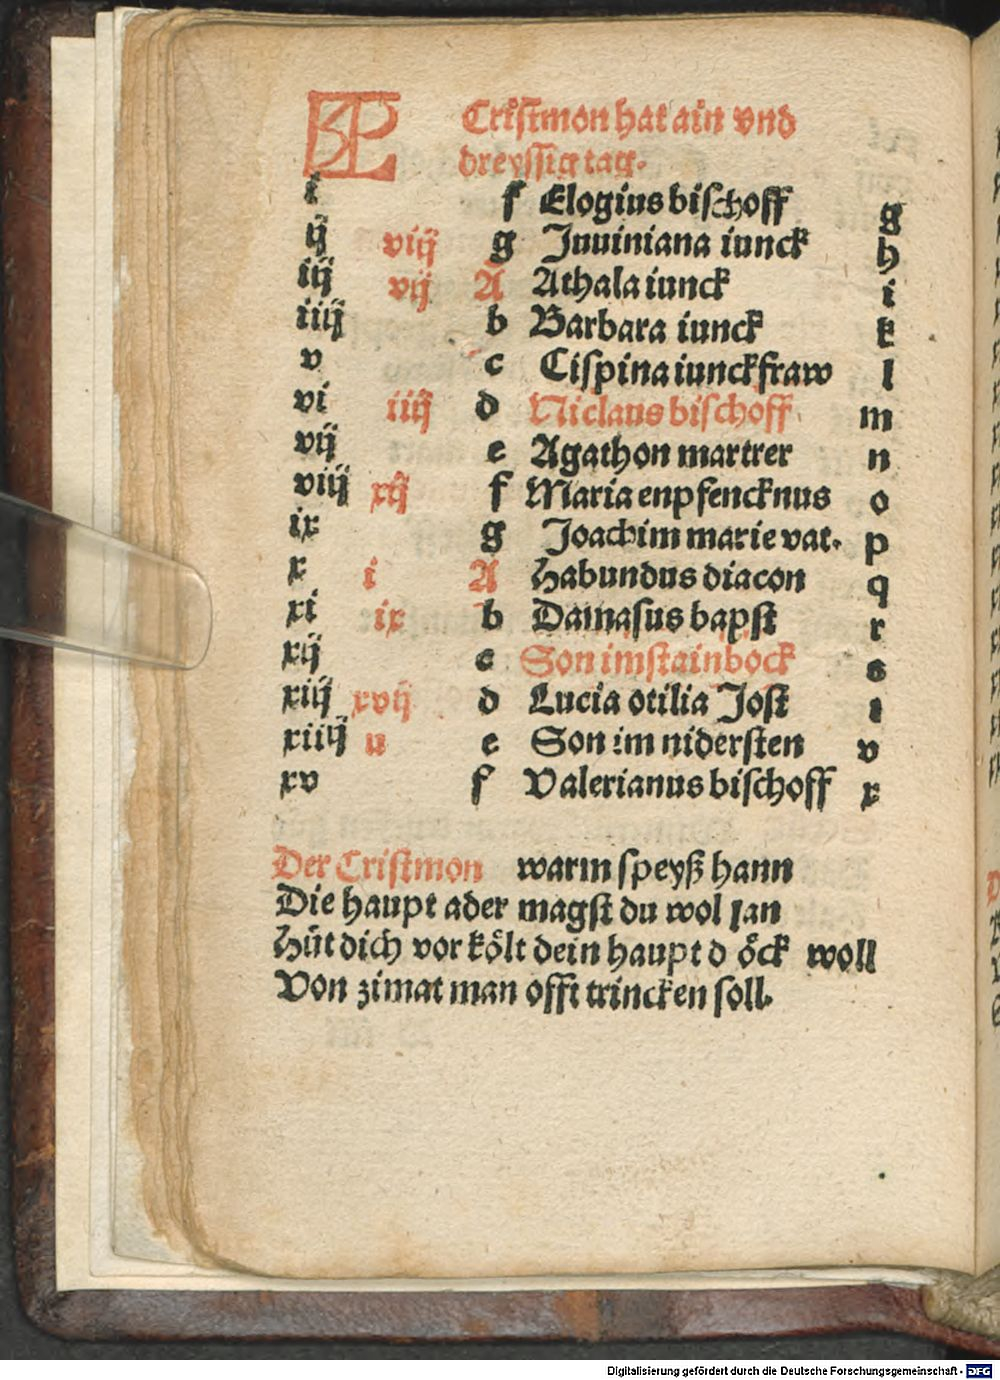 KL Cristmon hat ain vnd
dreyssig tag.
i f Elogius bischoff g
ij viij g Juuiniana iunck h
iij vij A Athala iunck i
iiij b Barbara iunck k
v c Cispina iunckfraw l
vi iiij d Niclaus bischoff m
vij e Agathon martrer n
viij xij f Maria enpfencknus o
ix g Joachim marie vat. p
x i A Habundus diacon q
xi ix b Damasus bapst r
xij c Son im stainbock s
xiij xvij d Lucia otilia Jost t
xiiij u e Son im nidersten v
xv f Valerianus bischoff x
Der Cristmon warm speyß hann
Die haupt ader magst du wol lan
Hüt dich vor költ dein haupt d öck woll
Von zimat man offt trincken soll.
Digitalisierung gefördert durch die Deutsche Forschungsgemeinschaft - DFG